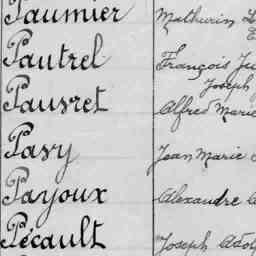 Paumier Mathurin
Pautrel François
Joseph
Pauvret Alfred Marie
Pavy Jean Marie
Payoux Alexandre
Pécault Joseph